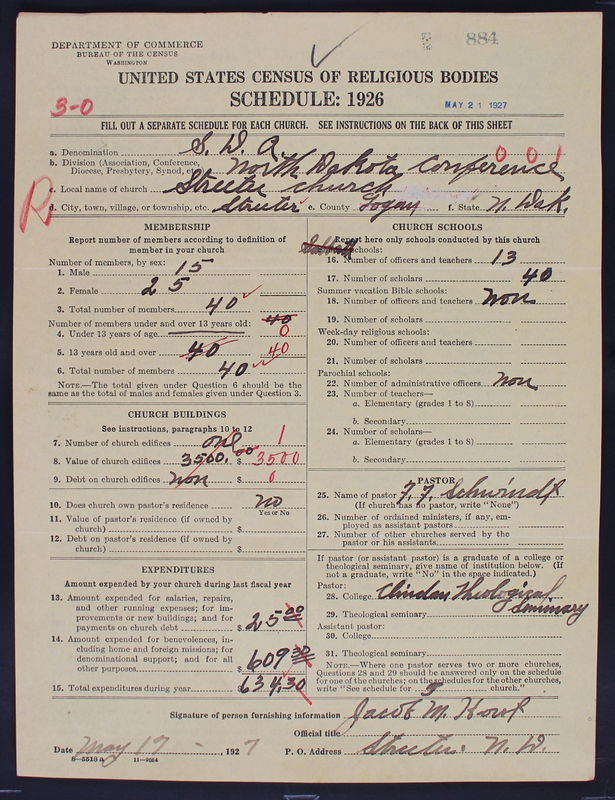 884
DEPARTMENT OF COMMERCE
BUREAU OF THE CENSUS
WASHINGTON
UNITED STATES CENSUS OF RELIGIOUS BODIES
SCHEDULE: 1926
3-0
MAY 21 1927
FILL OUT A SEPARATE SCHEDULE FOR EACH CHURCH. SEE INSTRUCTIONS ON THE BACK OF THIS SHEET
a. Denomination S. D. A.
b. Division (Association, Conference, Diocese, Presbytery, Synod, etc.) North Dakota Conference 001
c. Local name of church Streeter church
d. City, town, village, or township, etc. Streeter e. County Logan f. State N. Dak.
R
MEMBERSHIP
Report number of members according to definition of
member in your church
Number of members, by sex:
1. Male 15
2. Female 25
3. Total number of members 40
Number of members under and over 13 years old: 40
4. Under 13 years of age 0
5. 13 years old and over 40 40
6. Total number of members 40
NOTE.—The total given under Question 6 should be the
same as the total of males and females given under Question 3.
CHURCH BUILDINGS
See instructions, paragraphs 10 to 12
7. Number of church edifices one 1
8. Value of church edifices 3500.00 $ 3500
9. Debt on church edifices non $ 0
10. Does church own pastor's residence no
Yes or No
11. Value of pastor's residence (if owned by
church) $
12. Debt on pastor's residence (if owned by
church) $
EXPENDITURES
Amount expended by your church during last fiscal year
13. Amount expended for salaries, repairs,
and other running expenses; for im-
provements or new buildings; and for
payments on church debt $ 25.00
14. Amount expended for benevolences, in-
cluding home and foreign missions; for
denominational support; and for all
other purposes $ 609.30
15. Total expenditures during year 634.30
CHURCH SCHOOLS
Report here only schools conducted by this church
Sabbath schools:
16. Number of officers and teachers 13
17. Number of scholars 40
Summer vacation Bible schools:
18. Number of officers and teachers non
19. Number of scholars
Week-day religious schools:
20. Number of officers and teachers
21. Number of scholars
Parochial schools:
22. Number of administrative officers non
23. Number of teachers—
a. Elementary (grades 1 to 8)
b. Secondary
24. Number of scholars—
a. Elementary (grades 1 to 8)
b. Secondary
PASTOR
25. Name of pastor F. F. Schwindt
(If church has no pastor, write "None")
26. Number of ordained ministers, if any, em-
ployed as assistant pastors
27. Number of other churches served by the
pastor or his assistants
If pastor (or assistant pastor) is a graduate of a college or
theological seminary, give name of institution below. (If
not a graduate, write "No" in the space indicated.)
Pastor:
28. College Clinton Theological
29. Theological seminary Seminary
Assistant pastor:
30. College
31. Theological seminary
NOTE.—Where one pastor serves two or more churches,
Questions 28 and 29 should be answered only on the schedule
for one of the churches; on the schedules for the other churches,
write "See schedule for church."
Signature of person furnishing information Jacob M.
Official title
Date May 17 , 1927 P. O. Address Streeter N. D.
8—5519a 11—9064